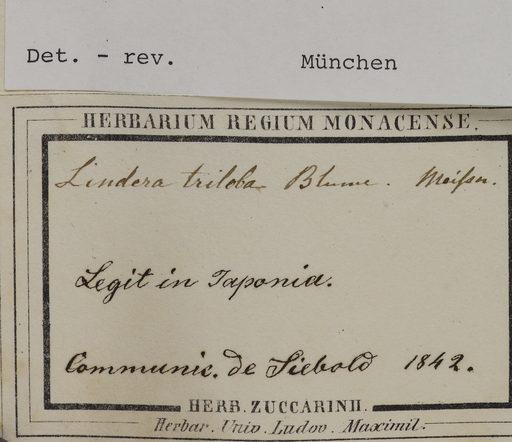 Det. - rev. München
HERBARIUM REGIUM MONACENSE.
Lindera triloba Blume. Meißn.
Legit in Japonia.
Communic. de Siebold 1842.
HERB. ZUCCARINII.
Herbar. Univ. Ludov. Maximil.